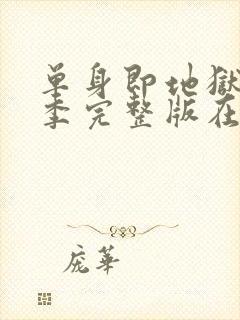 单身即地獄
季完整版在
庞華